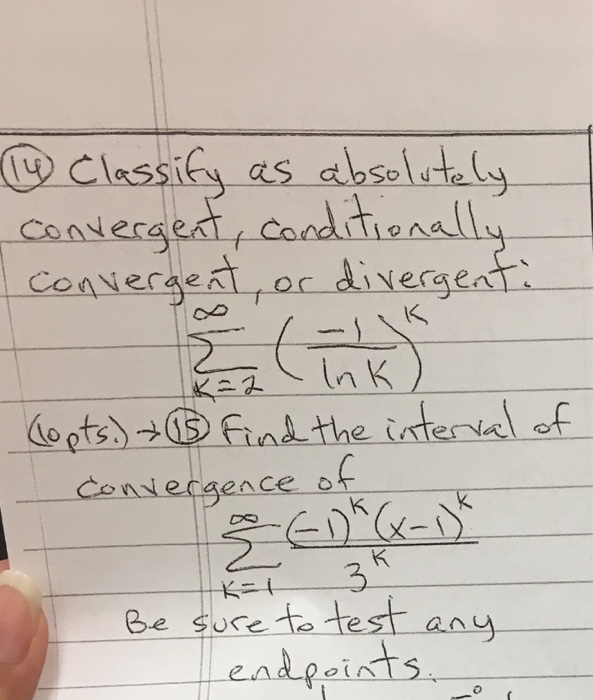 (14) Classify as absolutely
convergent, conditionally
convergent, or divergent:
∞
Σ (-1/ln K)^K
K=2
(10pts.) → (15) Find the interval of
convergence of
∞
Σ (-1)^K (x-1)^K / 3^K
K=1
Be sure to test any
endpoints.